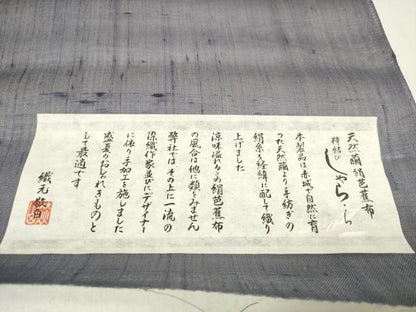 天然繭絹芭蕉布
特結び
しゃら・ら
本製品は赤城で自然に育
った天然繭より手紡ぎの
絹糸を経緯に配して織り
上げました
涼味溢れるこの絹芭蕉布
の風合は他に類をみません
弊社ではその上に一流の
染織作家並びにデザイナー
に依り手加工を施しました
盛夏のおしゃれきものと
して最適です
織元敬白